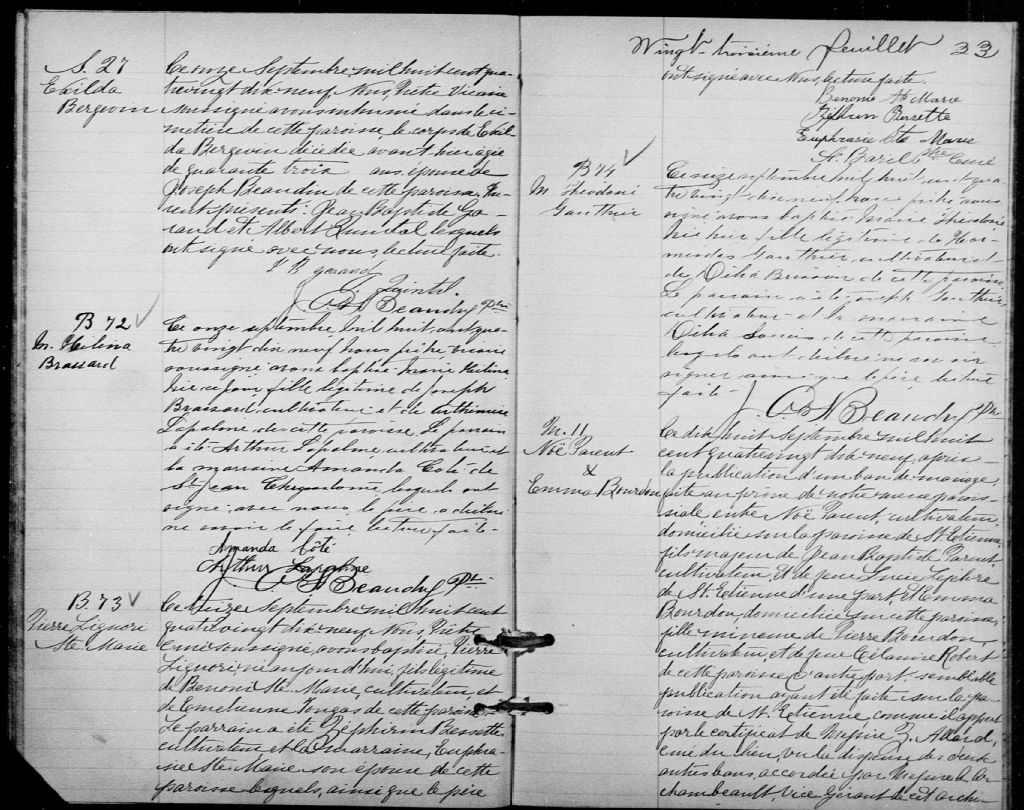 S. 27
Exilda
Bergevin
Ce onze Septembre mil huit cent qua-
trevingt dix neuf Nous, Prêtre Vicaire
soussigné avons inhumé dans le ci-
metière de cette paroisse le corps de Exil
da Bergevin décédée avant hier agée
de quarante trois ans, épouse de
Joseph Beaudin de cette paroisse. Fu-
rent présents: Jean Baptiste
et Albert lesquels
ont signé avec nous, lecture faite.
J B
J. C. A Beaudry Ptre
B 72
M. Hélina
Brassard
Ce onze septembre mil huit cent qua-
tre vingt dix neuf nous prêtre vicaire
soussigné avons baptisé Marie Hélina
née ce jour, fille légitime de Joseph
Brassard cultivateur et de
Lapalme de cette paroisse. Le parrain
a été Arthur Lapalme cultivateur et
la marraine Amanda Coté de
St Jean Chrysostome lesquels ont
signé avec nous, le père a déclaré
ne savoir le faire lecture faite.
Amanda Côté
Arthur Lapalme
J. C. A Beaudry Ptre
B. 73
Pierre Liguori
Ste Marie
Ce treize Septembre mil huit cent
quatrevingt dix neuf Nous, Prêtre
Curé soussigné, avons baptisé, Pierre
Liguori, né aujourd'hui, fils légitime
de Benoni Ste Marie, cultivateur, et
de Emelienne de cette paroisse.
Le parrain a été Zéphirin Bessette
cultivateur et la marraine, Euphra-
sie Ste Marie son épouse de cette
paroisse lesquels, ainsi que le père
Vingt-troisième feuillet 23
ont signé avec Nous, lecture faite
Benonie Ste Marie
Zéphirin Bessette
Euphrasie Ste Marie
Ptre Curé
B 74
M Théodorie
Gauthier
Ce seize septembre mil huit cent qua-
tre vingt dix neuf, nous prêtre sous-
signé avons baptisé Marie
née hier fille légitime de Hor-
misdas Gauthier, cultivateur et
de de cette paroisse
Le parrain a été Joseph Gauthier
cultivateur et la marraine
de cette paroisse
lesquels ont déclaré ne savoir
signer ainsi que le père lecture
faite.
J. C. A Beaudry Ptre
M. 11
Noë Parent
&
Emma Bourdon
Ce dix huit Septembre mil huit
cent quatrevingt dix neuf, après
la publication d'un ban de mariage,
faite au prône de notre messe parois-
siale entre Noë Parent, cultivateur,
domicilié sur la paroisse de St. Etienne,
fils majeur de Jean Baptiste Parent
cultivateur, et de feue Lucie
de St. Etienne d'une part, et Emma
Bourdon, domiciliée sur cette paroisse,
fille mineure de Pierre Bourdon,
cultivateur, et de feue Célanire Robert
de cette paroisse d'autre part. semblable
publication ayant été faite sur la pa-
roisse de St. Etienne comme il appert
par le certificat de Messire Z. Allard,
curé du lieu, vu la dispense de deux
autres bans, accordée par Messire Ar-
chambeault, Vice gérant de cet archi-